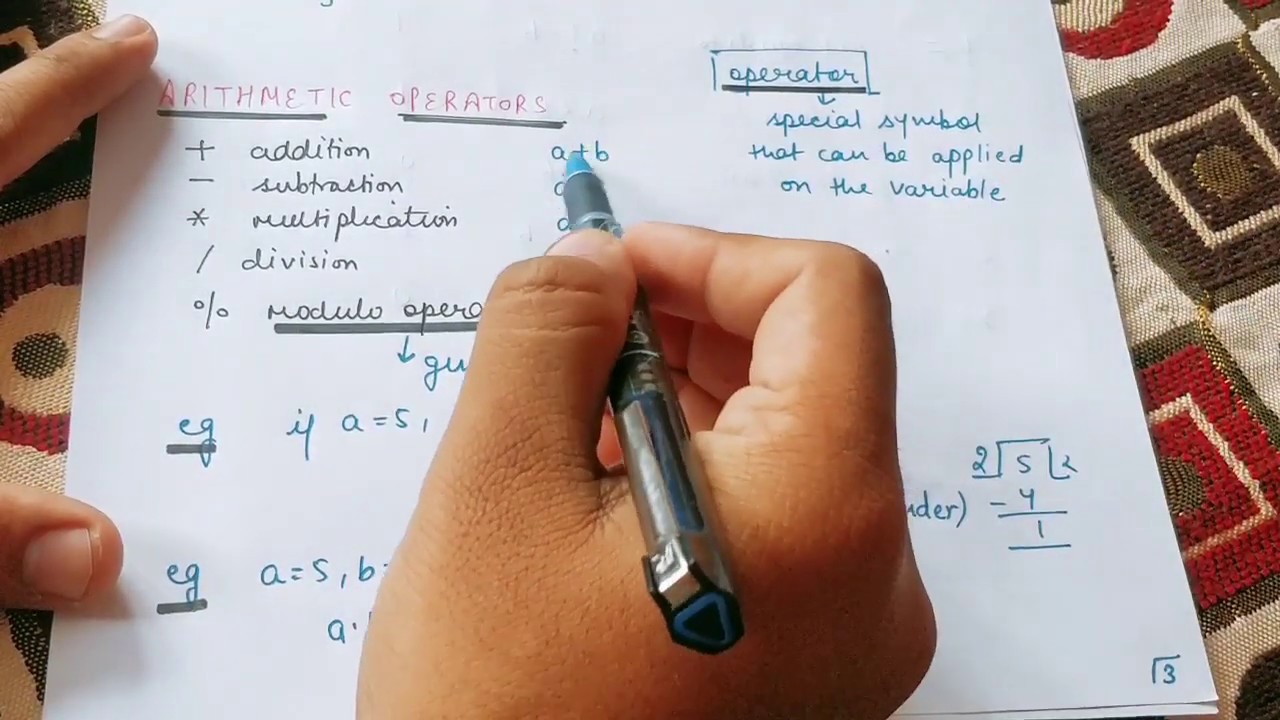 ARITHMETIC OPERATORS
+ addition a+b
- subtraction
* multiplication
/ division
% Modulo
operator
special symbol
that can be applied
on the variable
eg if a=5,
2 5 2
-4
1
eg a=5, b=
3